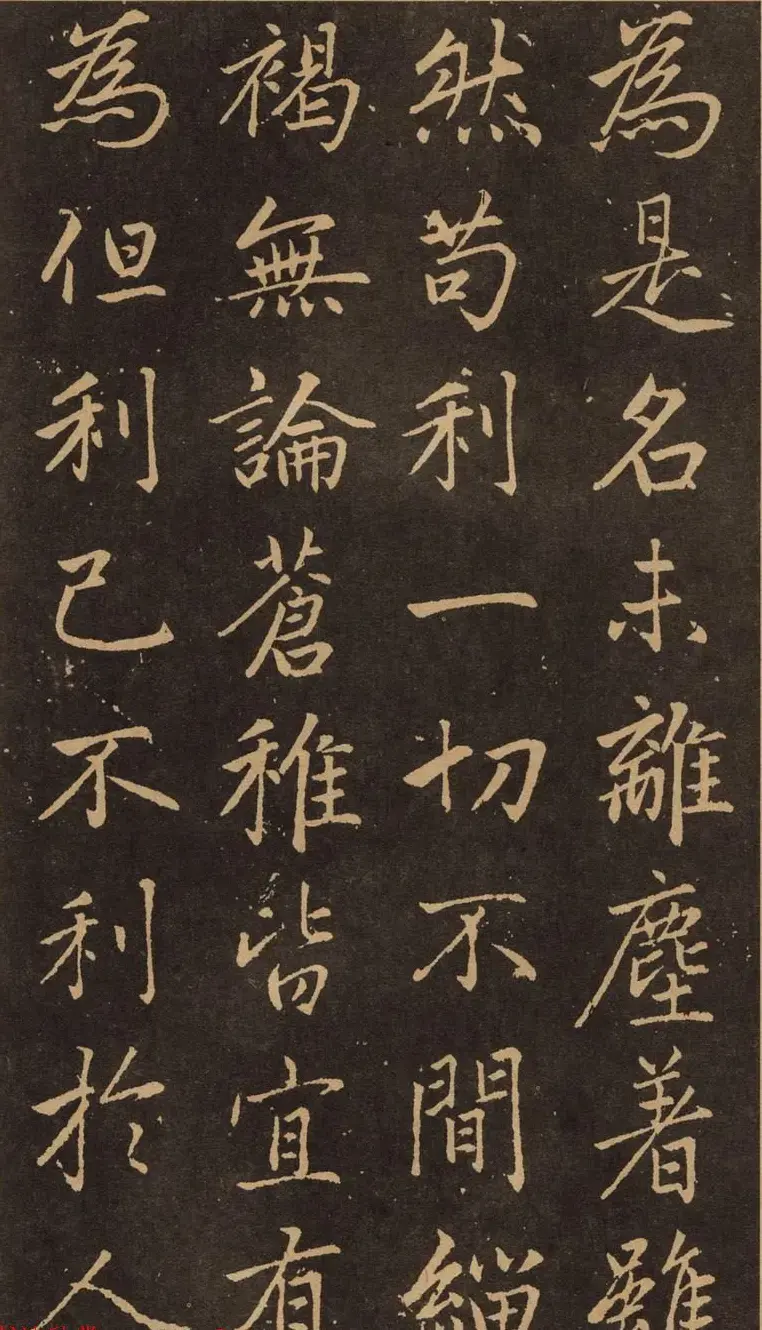 為是名未離塵着雖
然苟利一切不間緇
褐無論蒼稚皆宜有
為但利己不利於人